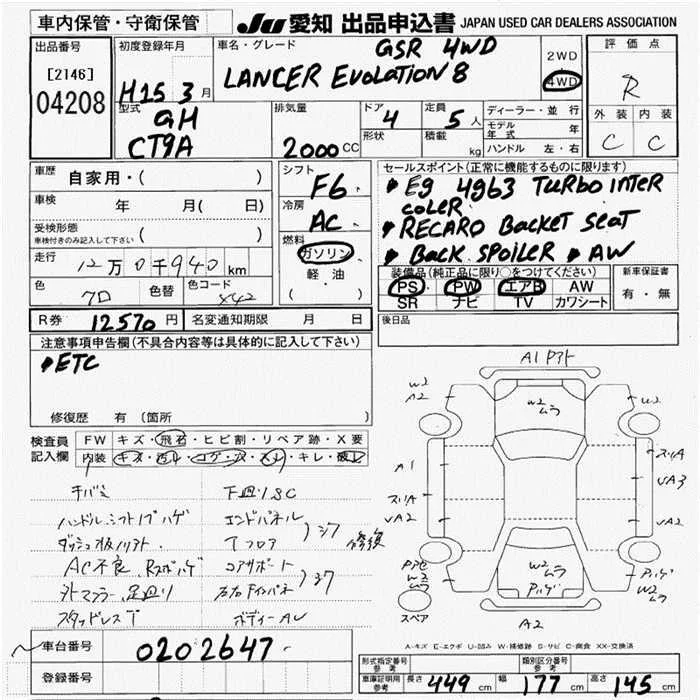 車内保管・守衛保管
JU 愛知 出品申込書 JAPAN USED CAR DEALERS ASSOCIATION
出品番号
[2146]
04208
初度登録年月
H15 3月
車名・グレード
GSR 4WD
LANCER Evolution 8
2WD
4WD
評価点
R
外装 内装
C C
型式
GH
CT9A
排気量
2000 CC
ドア 4
形状
定員 5人
積載 kg
ディーラー・並行
モデル年式 年
ハンドル 左・右
車歴 自家用・( )
車検 年 月( 日)
受検形態
車検付きのみ記入して下さい ( )
走行 12万0千940 km
色 色替 色コード
X42
シフト
F6
冷房
AC
燃料
ガソリン
軽油
( )
セールスポイント(正常に機能するものに限ります)
Eg 4g63 TURbo inteR
coleR
RECARO Backet Seat
Back SPoileR AW
装備品(純正品に限り○をつけてください)
PS PW エアB AW
SR ナビ TV カワシート
新車保証書
有・無
R券 12570円
名変通知期限 月 日
後日品
注意事項申告欄(不具合内容等は具体的に記入して下さい)
ETC
修復歴 有(箇所 )
検査員
記入欄
FW キズ・飛石・ヒビ割・リペア跡・X要
内装 キズ・汚レ・コゲ・穴・スレ・キレ・破レ
キバミ 下廻リSC
ハンドル.シフトノブハゲ エンドパネル
Tフロア
修復
AC不良 コアサポート
外マフラー.足廻リ
スタッドレスT ボディーAU
A1
W2
A2
W2
ムラ
W2
A1
スリA
UA2
スリA
UA3
UA2
W2
ムラ
W2
ムラ
W2
ムラ
スペア
A2
A-キズ E-エクボ U-凹み W-補修跡 S-サビ C-腐食 XX-交換済
車台番号 0202647
登録番号
形式指定番号
参考
類別区分番号
参考
車庫証明用
参考
長さ 449 cm 幅 177 cm 高さ 145 cm